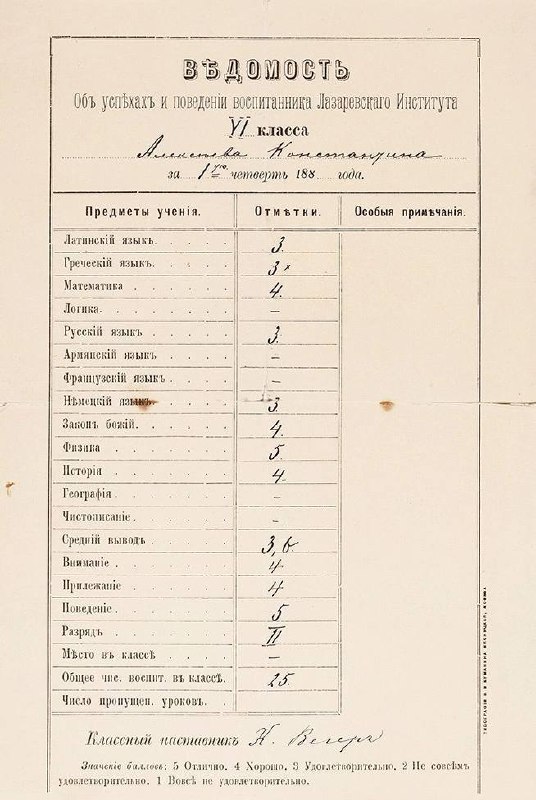 ВѢДОМОСТЬ
Объ успѣхахъ и поведеніи воспитанника Лазаревскаго Института
VI класса
Алексѣева Константина
за 1ую четверть 188 года.
Предметы ученія. Отмѣтки. Особыя примѣчанія.
Латинскій языкъ. 3.
Греческій языкъ. 3 x
Математика 4.
Логика. –
Русскій языкъ 3.
Армянскій языкъ –
Французскій языкъ –
Нѣмецкій языкъ. 3.
Законъ божій. 4.
Физика 5.
Исторія 4.
Географія. –
Чистописаніе. –
Средній выводъ 3,6
Вниманіе 4
Прилежаніе 4
Поведеніе. 5
Разрядъ II
Мѣсто въ классѣ –
Общее чис. воспит. въ классѣ. 25
Число пропущен. уроковъ.
Классный наставникъ Н.
Значеніе балловъ: 5 Отлично. 4 Хорошо. 3 Удовлетворительно. 2 Не совсѣмъ
удовлетворительно. 1 Вовсѣ не удовлетворительно.